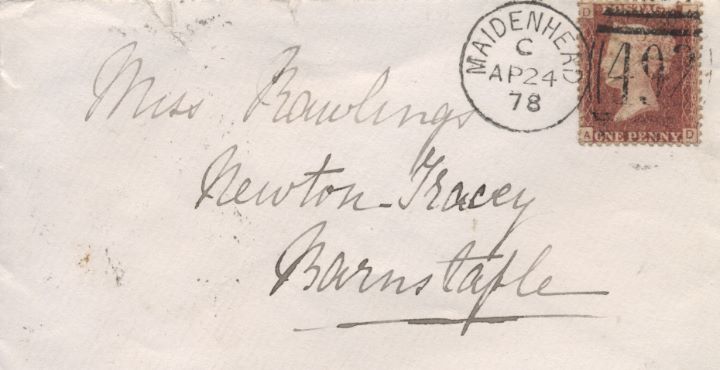 MAIDENHEAD
C
AP 24
78
492
D A
ONE PENNY
A D
Miss Rawlings
Newton-Tracey
Barnstaple